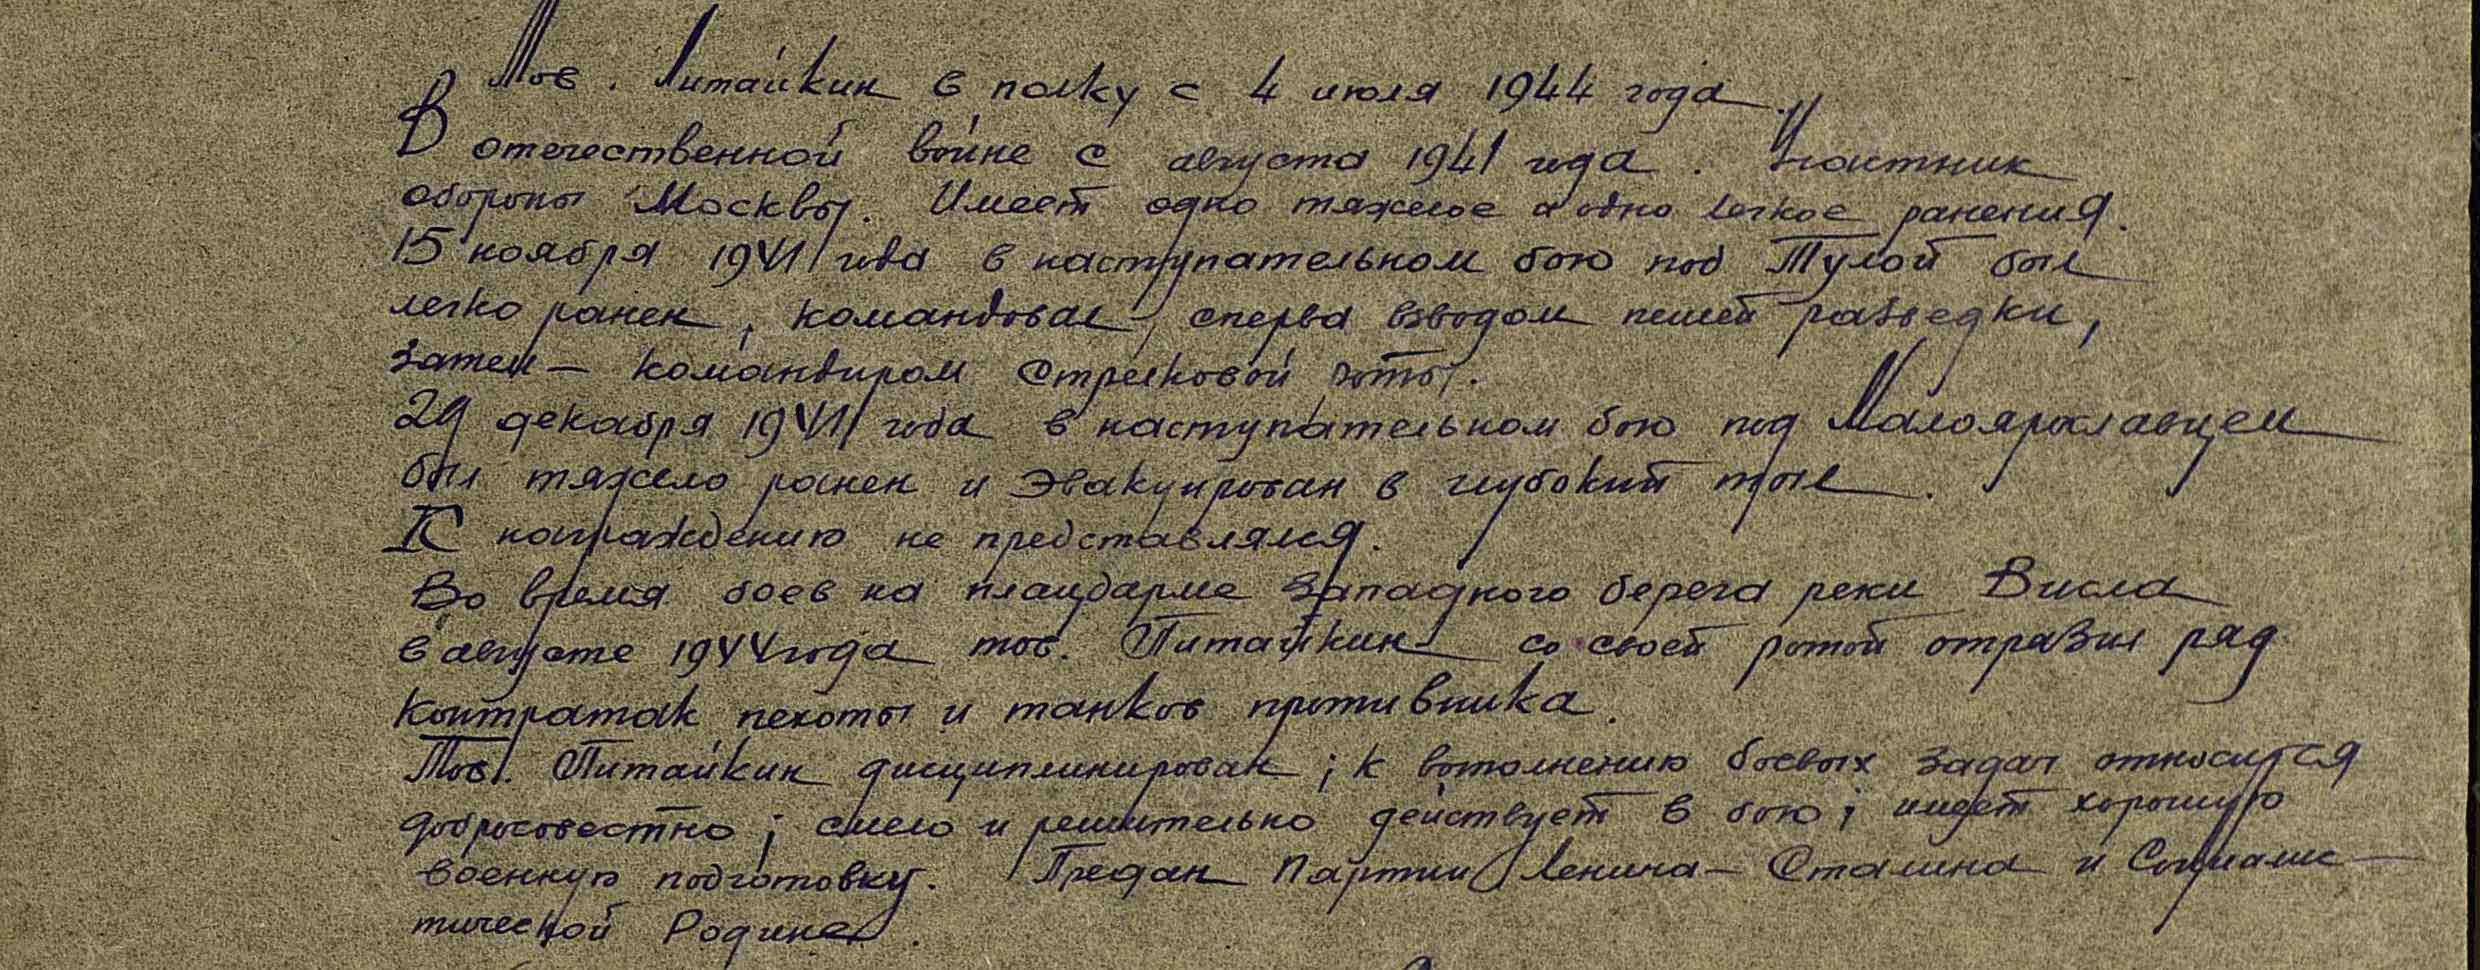 Тов. Питайкин в полку с 4 июля 1944 года.
В отечественной войне с августа 1941 года. Участник
обороны Москвы. Имеет одно тяжелое и одно легкое ранения.
15 ноября 1941 года в наступательном бою под Тулой был
легко ранен, командовал сперва взводом пешей разведки,
затем — командиром стрелковой роты.
29 декабря 1941 года в наступательном бою под Малоярославцем
был тяжело ранен и эвакуирован в глубокий тыл.
К награждению не представлялся.
Во время боев на плацдарме западного берега реки Висла
в августе 1944 года тов. Питайкин со своей ротой отразил ряд
контратак пехоты и танков противника.
Тов. Питайкин дисциплинирован; к выполнению боевых задач относится
добросовестно; смело и решительно действует в бою; имеет хорошую
военную подготовку. Предан Партии Ленина — Сталина и Социалис-
тической Родине.